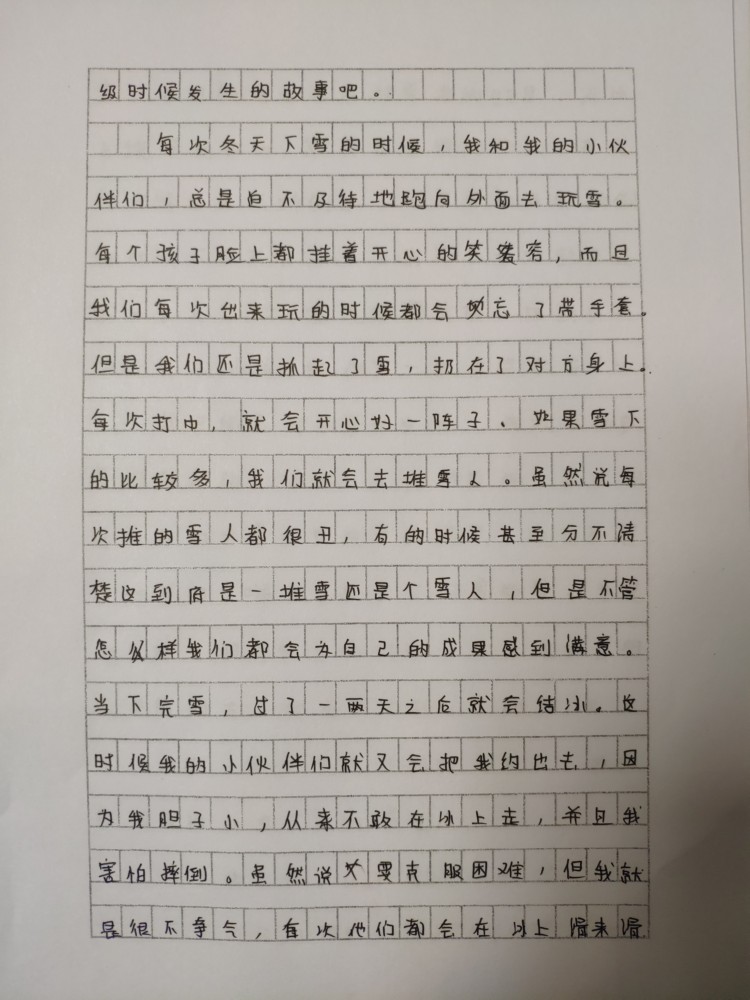 级时候发生的故事吧。
每次冬天下雪的时候，我和我的小伙
伴们，总是迫不及待地跑向外面去玩雪。
每个孩子脸上都挂着开心的笑容，而且
我们每次出来玩的时候都会忘了带手套。
但是我们还是抓起了雪，扔在了对方身上。
每次打中，就会开心好一阵子。如果雪下
的比较多，我们就会去堆雪人。虽然说每
次推的雪人都很丑，有的时候甚至分不清
楚这到府是一堆雪还是个雪人，但是不管
怎么样我们都会为自己的成果感到满意。
当下完雪，过了一两天之后就会结冰。这
时候我的小伙伴们就又会把我约出去，因
为我胆子小，从来不敢在冰上走，并且我
害怕摔倒。虽然说要克服困难，但我就
是很不争气，每次他们都会在冰上滑来滑